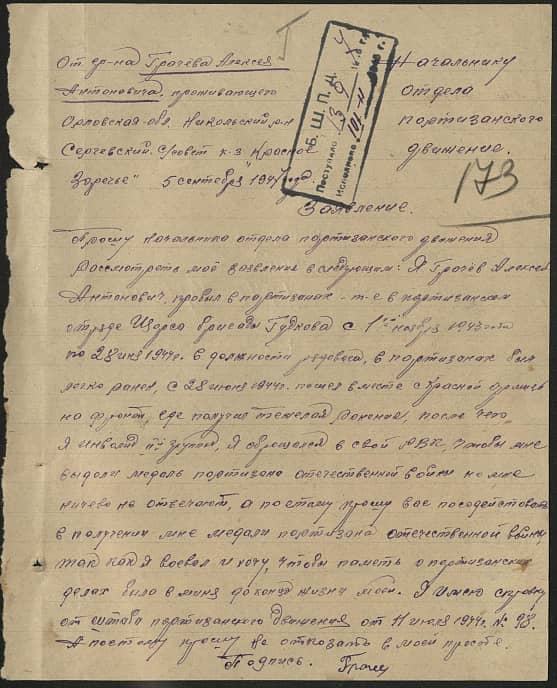 От гр-на Грачева Алексея
Антоновича, проживающего
Орловская обл. Никольский р-н
Сергевский с/совет к-з "Красное
Заречье" 5 сентября 1947 года.
Начальнику
отдела
партизанского
движения.
Б. Ш. П. Д.
Поступило 13 9
Исполнено
173
Заявление.
Прошу начальника отдела партизанского движения
рассмотреть моё заявление в следующим: Я Грачёв Алексей
Антонович, пробыл в партизанах - т-е в партизанском
отряде Щорса бригады Гудкова с 1го ноября 1943 года
по 28 июня 1944г. в должности рядовова, в партизанах был
легко ранен, с 28 июня 1944г. пошел вместе с Красной армией
на фронт, где получил тежелая ранение, после чего
я инвалид группы, я обращался в свой РВК, чтобы мне
выдали медаль партизана отечественной войны но мне
ничево не отвечают, а поэтаму прошу вас посодействовать
в получении мне медали партизана отечественной войны
так как я воевал и хочу, чтобы память о партизанских
делах была в миня до конца жизни моей. Я имею справку
от штаба партизанского движения от 11 июля 1944г. № 98.
А поэтому прошу не отказать в моей просьбе.
Подпись. Грачев